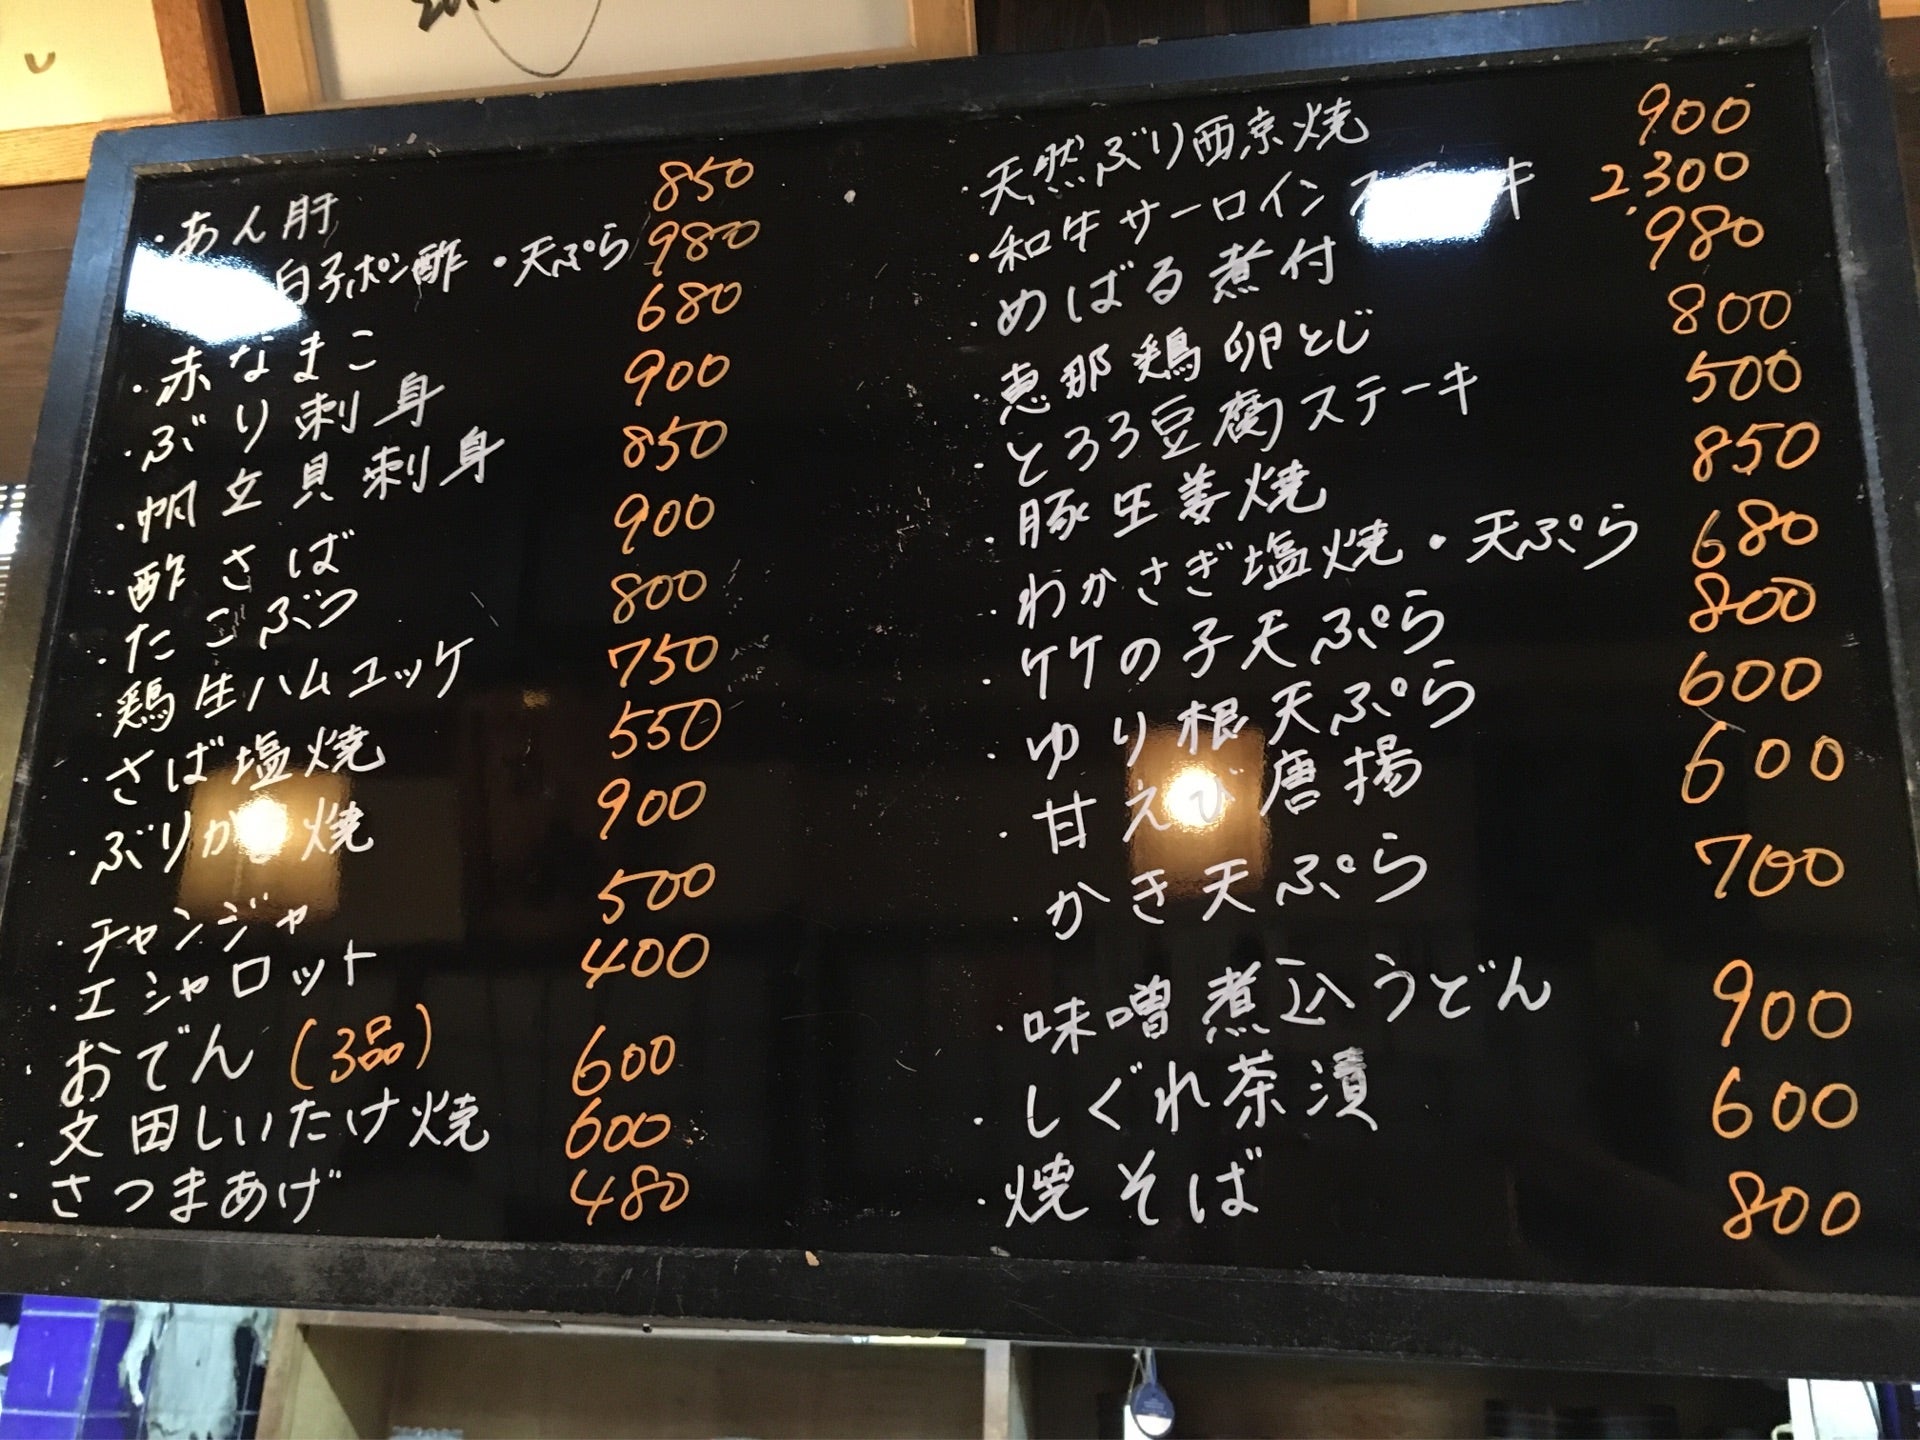 ・あん肝 850
白子ポン酢・天ぷら 980
・赤なまこ 680
・ぶり刺身 900
・帆立貝刺身 850
・酢さば 900
・たこぶつ 800
・鶏生ハムユッケ 750
・さば塩焼 550
・ぶりかま焼 900
・チャンジャ 500
・エシャロット 400
・おでん(3品) 600
・文田しいたけ焼 600
・さつまあげ 480
・天然ぶり西京焼 900
・和牛サーロインステーキ 2,300
・めばる煮付 980
・恵那鶏卵とじ 800
・とろろ豆腐ステーキ 500
・豚生姜焼 850
・わかさぎ塩焼・天ぷら 680
・ケケの子天ぷら 800
・ゆり根天ぷら 600
・甘えび唐揚 600
・かき天ぷら 700
・味噌煮込うどん 900
・しぐれ茶漬 600
・焼そば 800